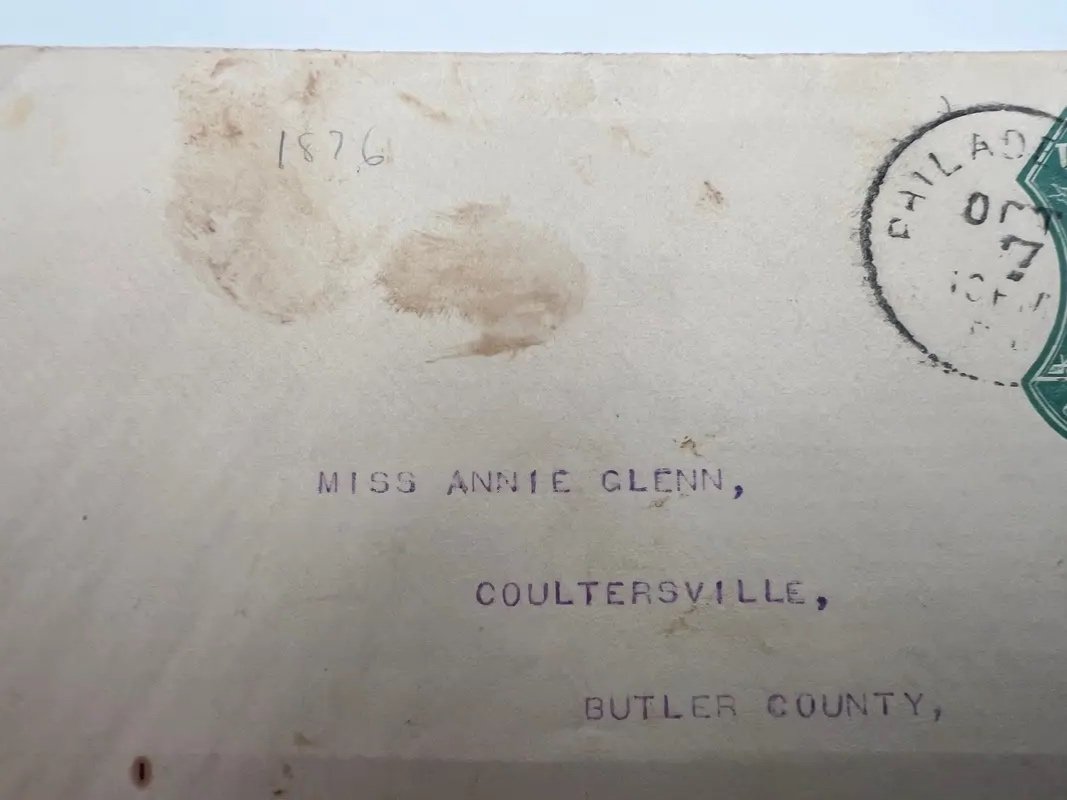 1876
PHILAD
MISS ANNIE GLENN,
COULTERSVILLE,
BUTLER COUNTY,